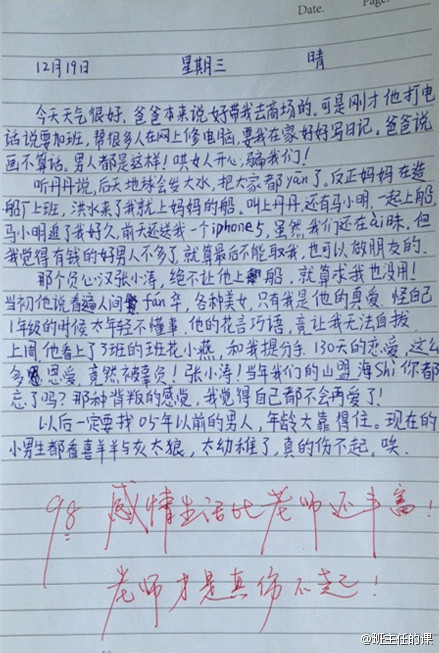 Date.
Page.
12月19日 星期三 晴
今天天气很好,爸爸本来说好带我去商场的。可是刚才他打电
话说要加班,帮很多人在网上修电脑,要我在家好好写日记。爸爸说
画不算话。男人都是这样!哄女人开心,骗我们!
听丹丹说,后天地球会发大水,把大家都yān了。反正妈妈在造
船厂上班,洪水来了我就上妈妈的船,叫上丹丹,还有马小明,一起上船,
马小明追了我好久,前天还送我一个iphone5,虽然,我们还在ài昧,但
我觉得有钱的好男人不多了,就算最后不能取我,也可以做朋友的。
那个负心汉张小涛,绝不让他上船,就算求我也没用!
当初他说看遍人间fán华,各种美女,只有我是他的真爱,怪自己
1年级的时候太年轻不懂事,他的花言巧语,竟让我无法自拔,
上周,他看上了3班的班花小燕,和我提分手,130天的恋爱,这么
多恩爱,竟然被辜负!张小涛!当年我们的山盟海Shi你都
忘了吗?那种背叛的感觉,我觉得自己都不会再爱了!
以后一定要找05年以前的男人,年龄大靠得住。现在的
小男生都看喜羊羊与灰太狼,太幼稚了,真的伤不起,唉.
98 感情生活比老师还丰富!
老师才是真伤不起!
@班主任的课